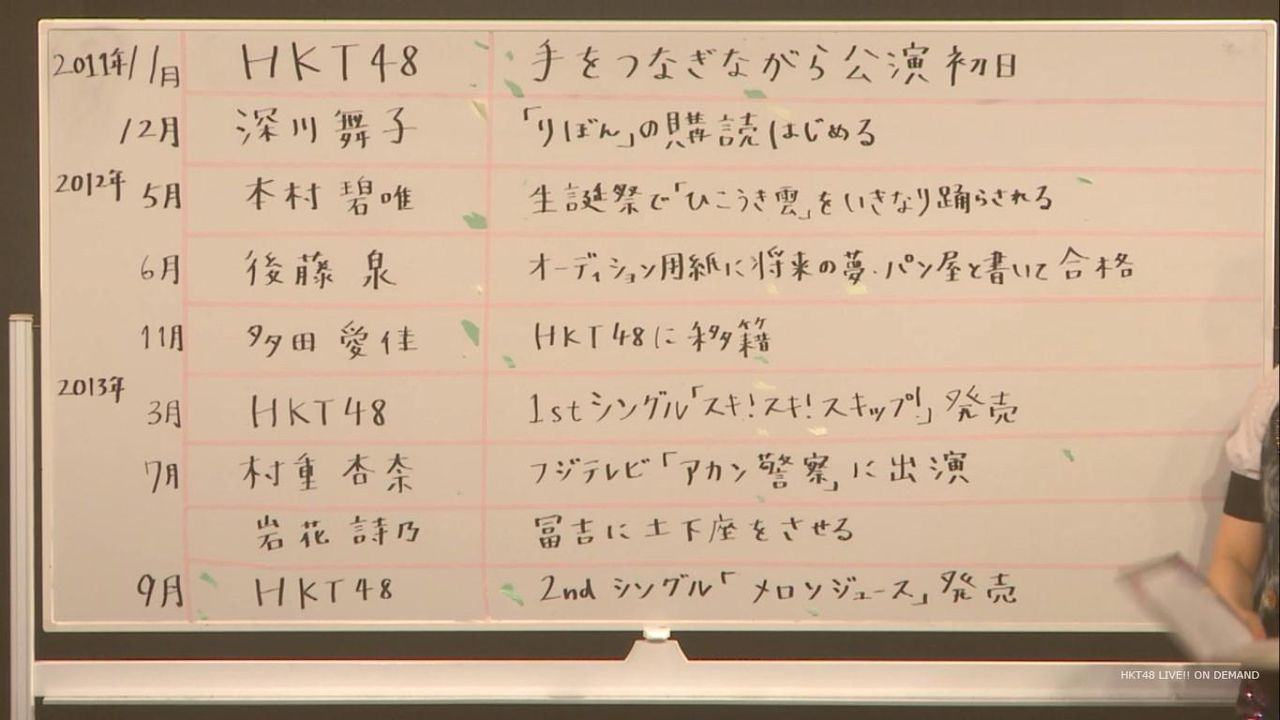 2011年11月 HKT48 手をつなぎながら公演初日
12月 深川舞子 「りぼん」の購読はじめる
2012年 5月 本村碧唯 生誕祭で「ひこうき雲」をいきなり踊らされる
6月 後藤泉 オーディション用紙に将来の夢・パン屋と書いて合格
11月 多田愛佳 HKT48に移籍
2013年 3月 HKT48 1stシングル「スキ!スキ!スキップ!」発売
7月 村重杏奈 フジテレビ「アカン警察」に出演
岩花詩乃 冨吉に土下座をさせる
9月 HKT48 2ndシングル「メロンジュース」発売
HKT48 LIVE!! ON DEMAND